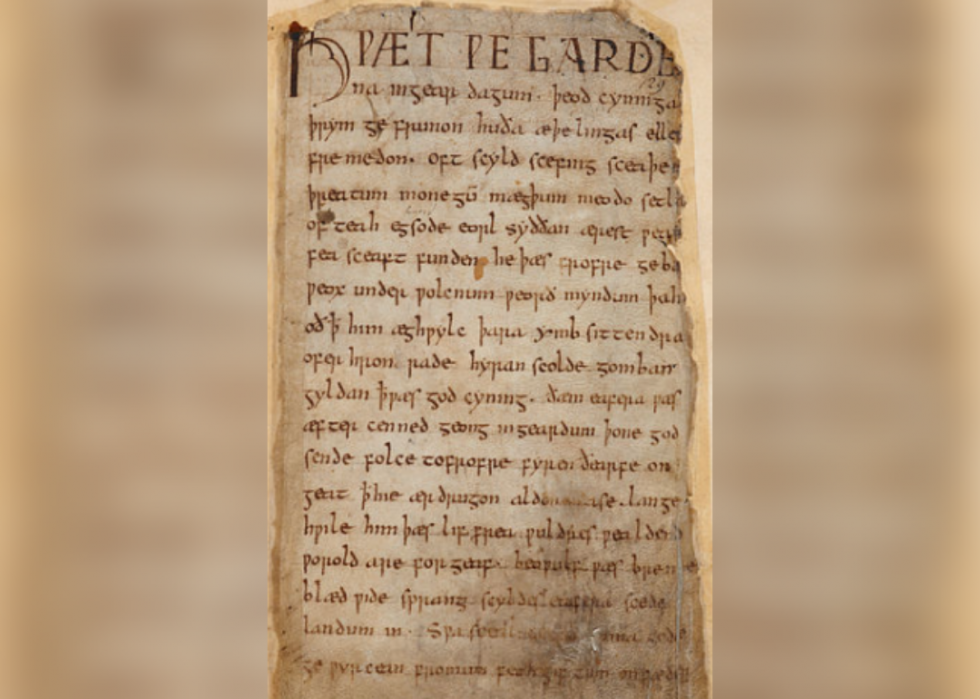 HǷÆT ǷE GARDE
na ingear dagum. þeod cyninga
þrym ge frunon huða æþelingas elle
fre medon. oft scyld scefing sceaþe
þreatum monegū mægþum meodo setla
of teah egsode eorl syððan ærest ƿe
fea sceaft funden he þæs frofre geba
ƿeox under ƿolcnum ƿeorð myndum þah
oð þ him æghƿylc þara ymb sittendra
ofer hron rade hyran scolde gomban
gyldan þ ƿæs god cyning. ðæm eafera ƿæs
æfter cenned geong ingeardum þone god
sende folce tofrofre fyren ðearfe on
geat ꝥ hie ær drugon aldor ase. lange
hƿile him þæs lif frea ƿuldres ƿealdend
ƿorold are for geaf. beoƿulf ƿæs breme
blæd ƿide sprang scyldes eafera scede
landum in. Sƿa guma gode
ge ƿyrcean fromum feoh giftum on fæder